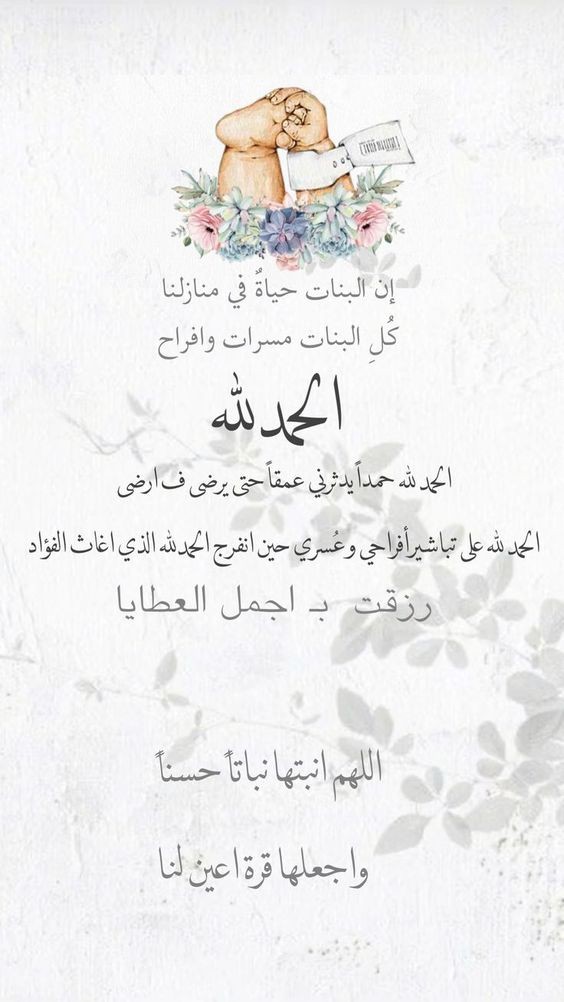 إن البنات حياةٌ في منازلنا
كُلِ البنات مسرات وافراح
الحمدلله
الحمدلله حمداً يدثرني عمقاً حتى يرضى ف ارضى
الحمدلله على تباشير أفراحي وعُسري حين انفرج الحمدلله الذي اغاث الفؤاد
رزقت بـ اجمل العطايا
اللهم انبتها نباتاً حسناً
واجعلها قرة اعين لنا